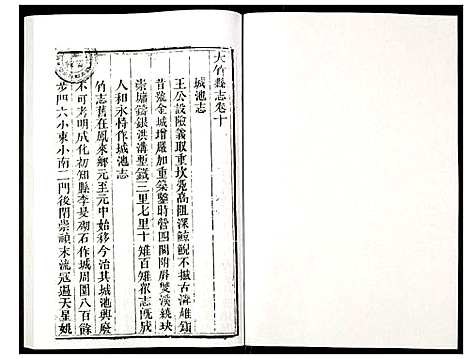 大竹縣志卷十
城池志
王公設險義取重坎堯高阻深鯨鯢不摅古濠雄鎮
昔號金城增嚴加重築鑿時營四關閈屛雙溪繞玦
崇墉鑄銀洪溝塹鐵三里七里十雉百雉郡志旣成
人和永恃作城池志
竹志舊在鳳來鄕元至元中始移今治其城池興廢
不可考明成化初知縣李是砌石作城周圍八百餘
步門六小東小南二門後閉崇禎末流寇過天星姚